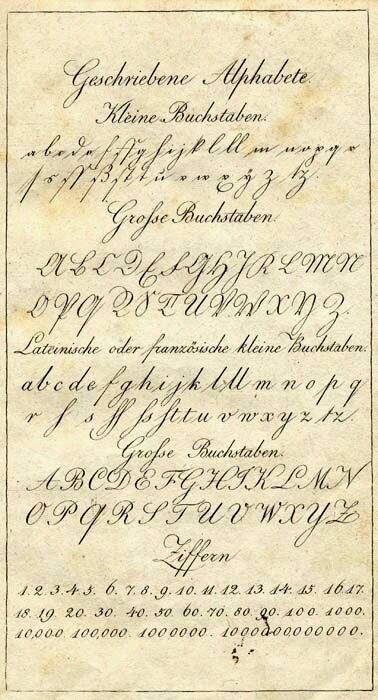 Geschriebene Alphabete.
Kleine Buchstaben.
a b c d e f ff g h i j k l ll m n o p q r
ſ s ſſ ß ſt t u v w x y z tz.
Grosse Buchstaben.
A B C D E F G H J K L M N
O P Q R S T U V W X Y Z.
Lateinische oder französische kleine Buchstaben.
a b c d e f g h i j k l ll m n o p q
r ſ s ſſ ſs ſt t u v w x y z tz.
Grosse Buchstaben.
A B C D E F G H I K L M N
O P Q R S T U V W X Y Z
Ziffern
1. 2. 3. 4. 5. 6. 7. 8. 9. 10. 11. 12. 13. 14. 15. 16. 17.
18. 19. 20. 30. 40. 50. 60. 70. 80. 90. 100. 1000.
10,000. 100,000. 1000000. 1000000000000.